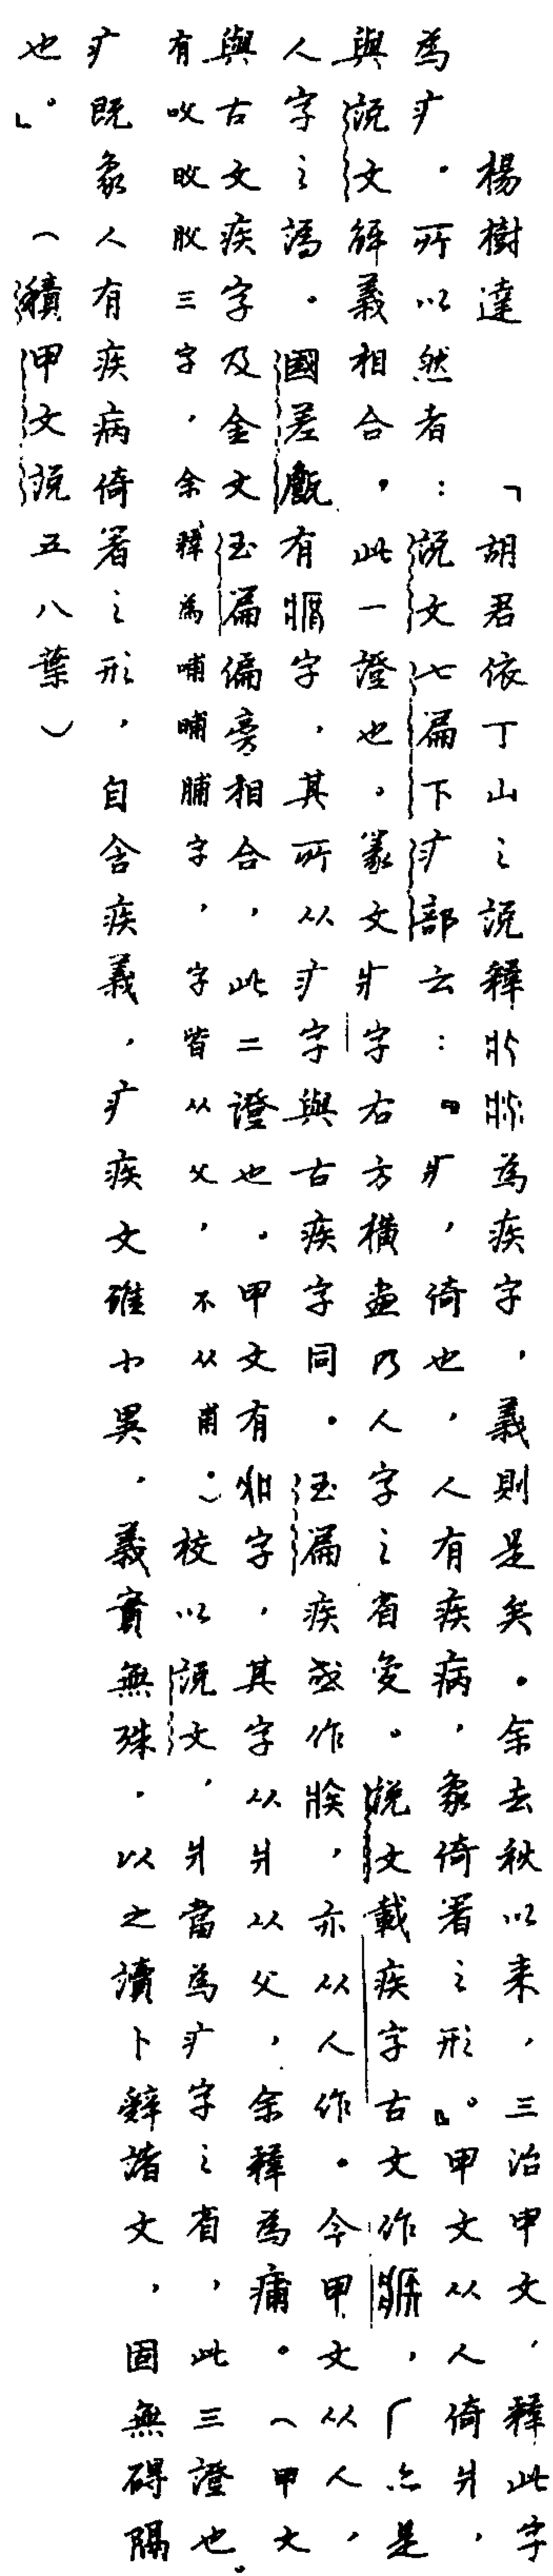 楊樹達 「胡君依丁山之說釋為疾字，義則是矣。余去秋以來，三治甲文，釋此字
為疒。所以然者：說文七篇下疒部云：『疒，倚也，人有疾病，象倚箸之形』。甲文从人倚爿，
與說文解義相合，此一證也。篆文疒字右方橫畫乃人字之省變。說文載疾字古文作，厂亦是
人字之譌。國差𦉜有字，其所从疒字與古疾字同。玉篇疾或作㑵，亦从人作。今甲文从人，
與古文疾字及金文玉篇偏旁相合，此二證也。甲文有字，其字从爿从父，余釋為痡。（甲文
有㕮䀯㕮三字，余釋為哺晡脯字，字皆从父，不从甫。）校以說文，爿當為疒字之省，此三證也。
疒既象人有疾病倚箸之形，自含疾義，疒疾文雖小異，義實無殊。以之讀卜辭諸文，固無碍隔
也」。（積甲文說五八葉）